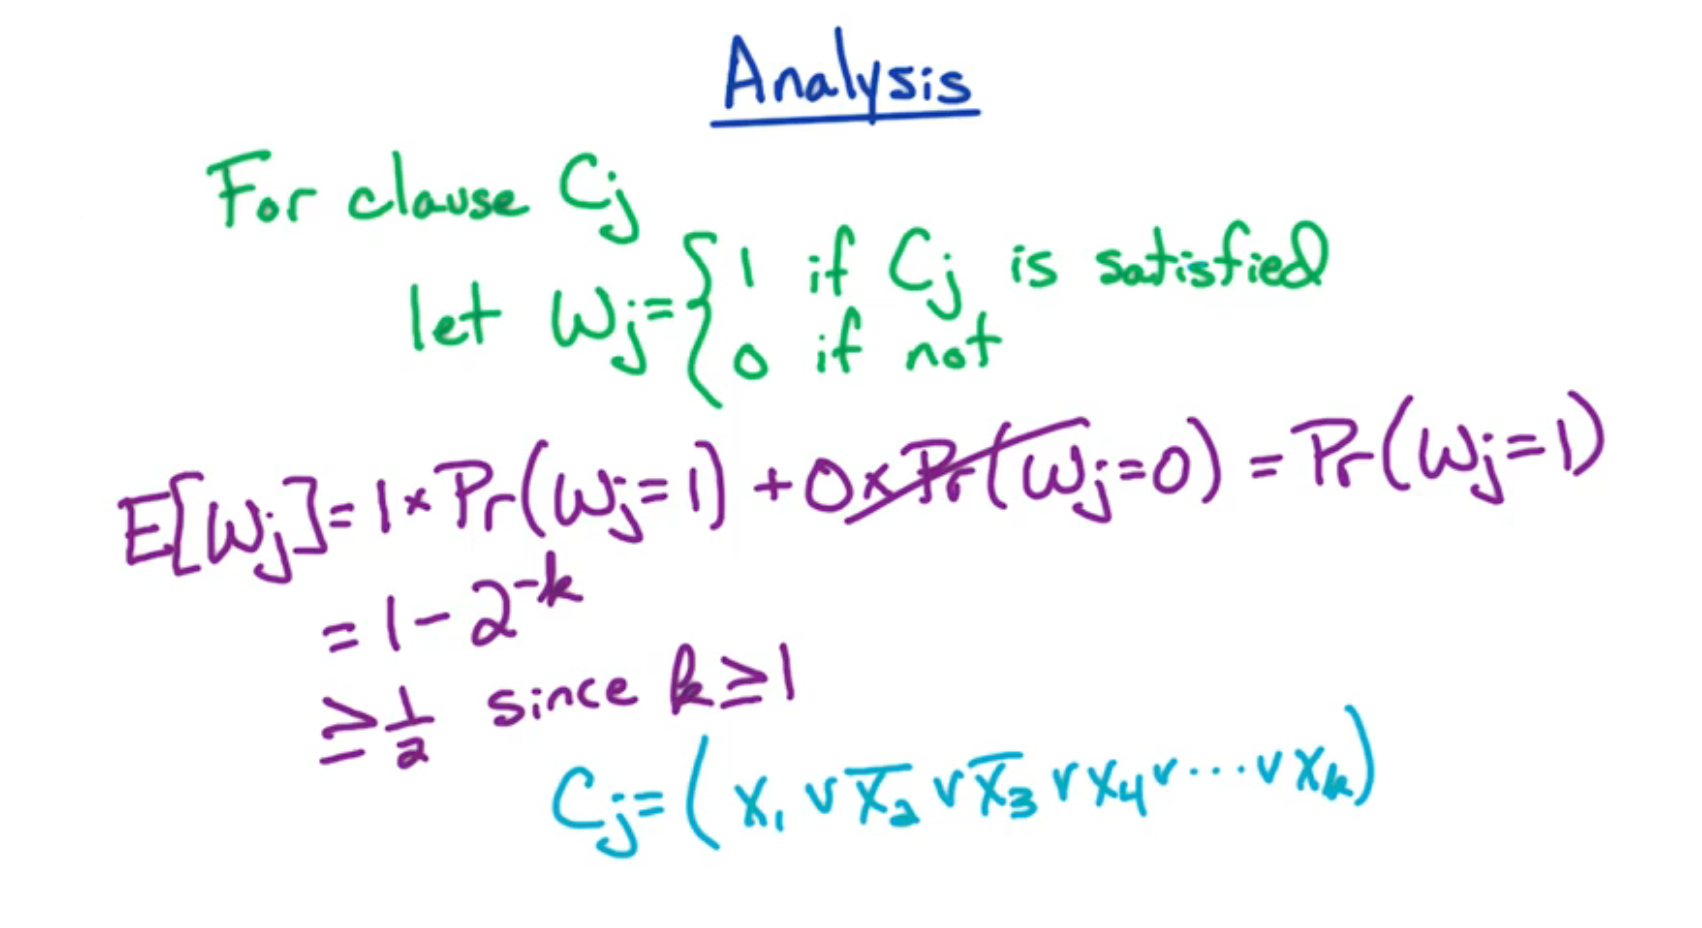 Analysis
For clause Cⱼ
let Wⱼ = { 1 if Cⱼ is satisfied
0 if not
E[Wⱼ] = 1 × Pr(Wⱼ = 1) + 0 × Pr(Wⱼ = 0) = Pr(Wⱼ = 1)
= 1 − 2⁻ᵏ
≥ 1/2 since k ≥ 1
Cⱼ = (x₁ ∨ x̅₂ ∨ x̅₃ ∨ x₄ ∨ ··· ∨ xₖ)